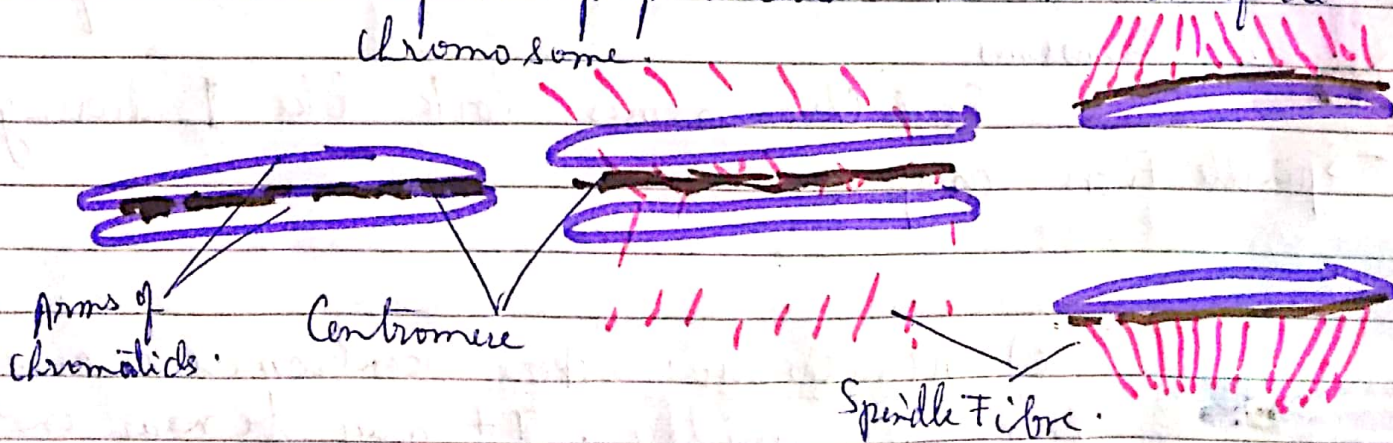 chromosome.
Arms of
chromatids.
Centromere
Spindle Fibre.